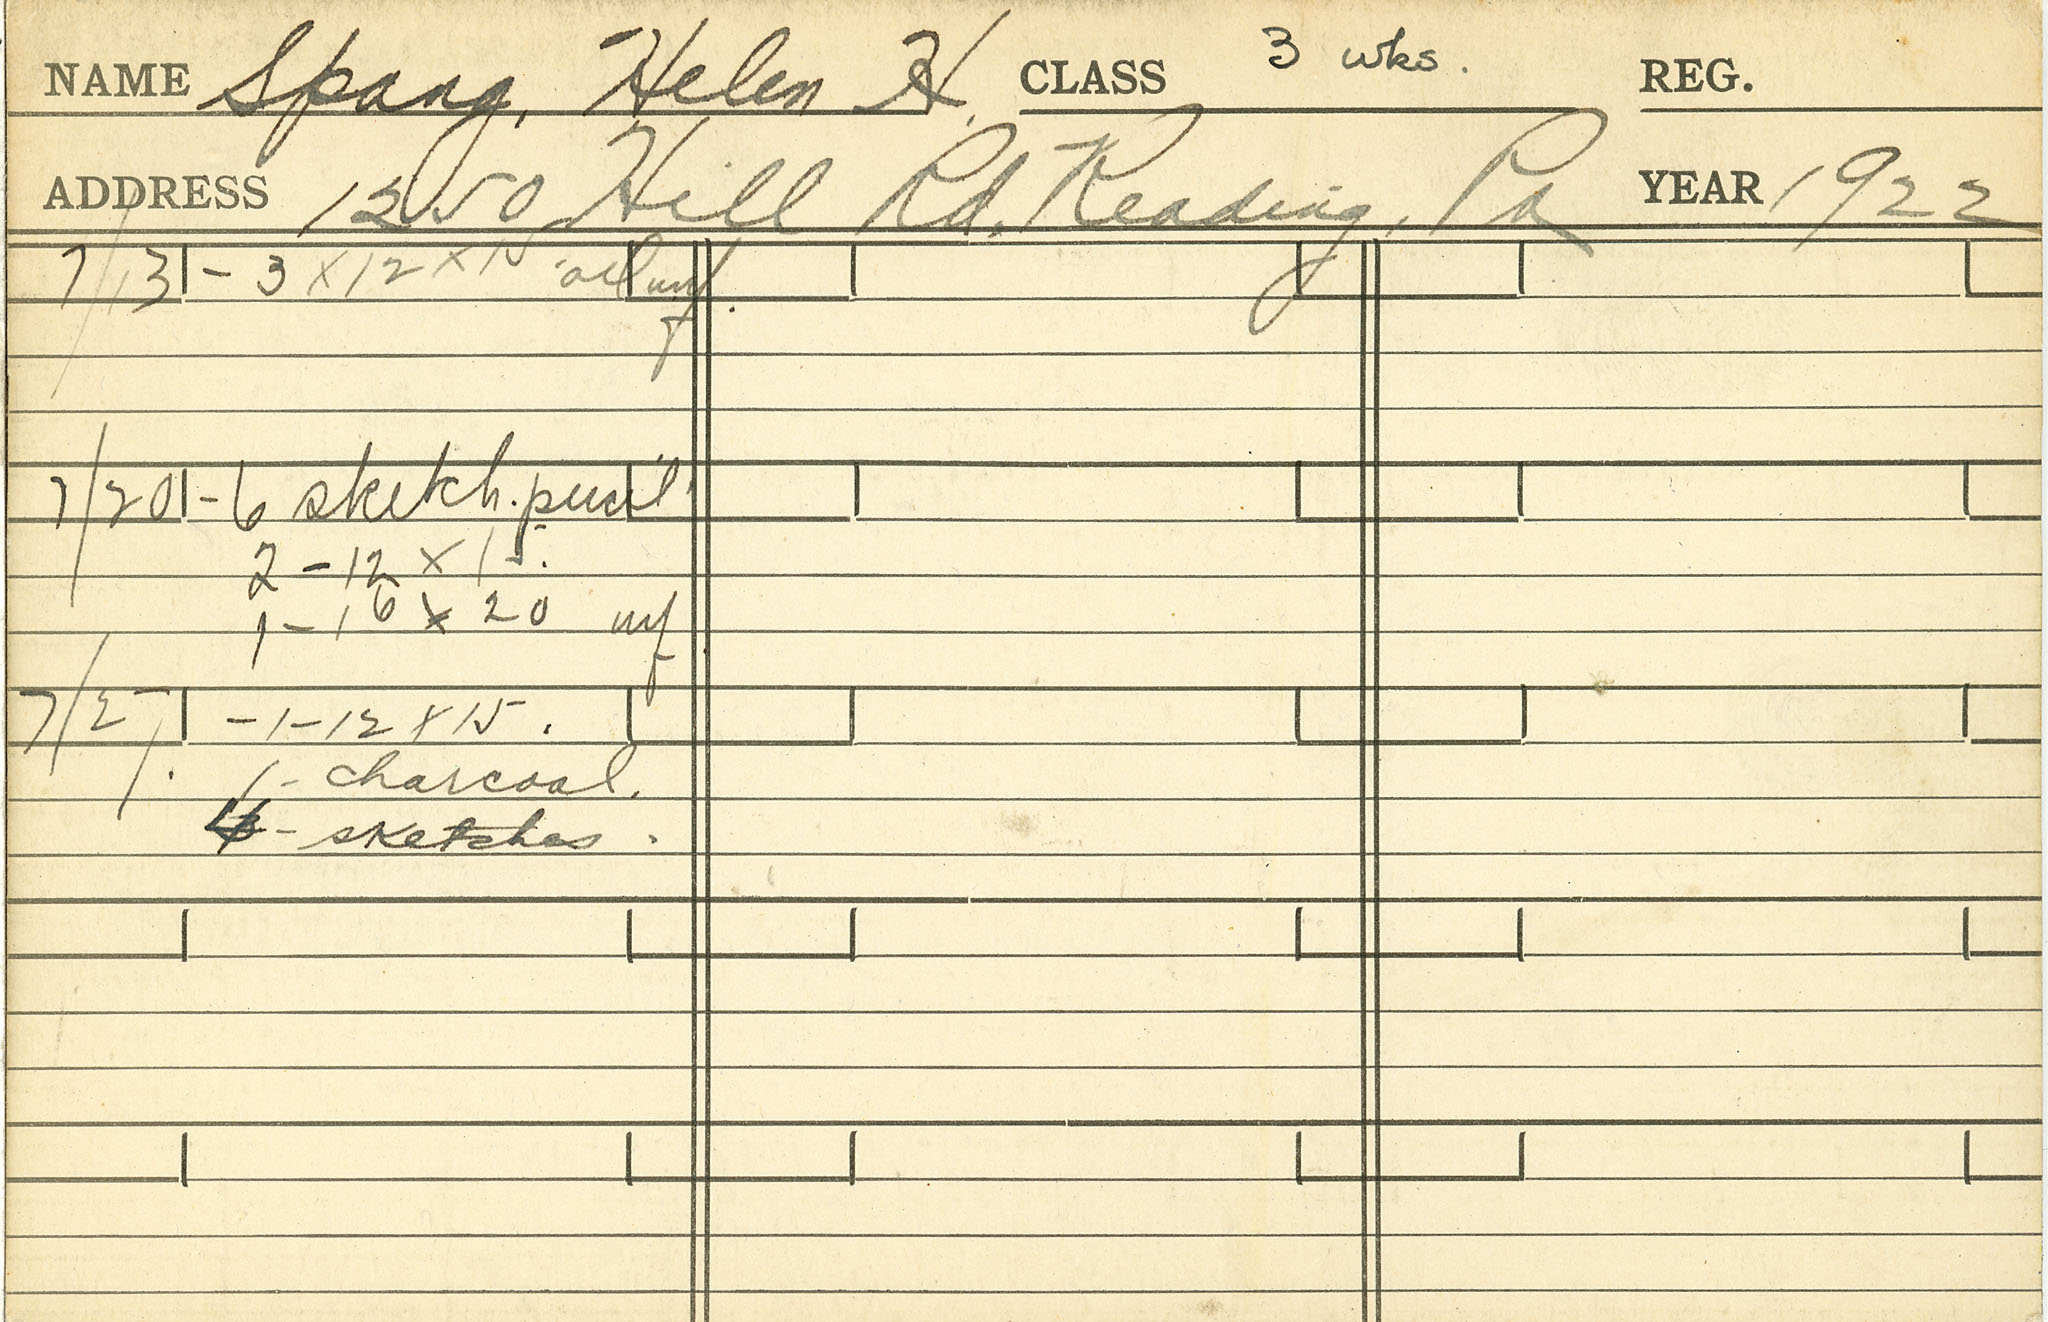 NAME Spang, Helen H. CLASS 3 wks. REG.
ADDRESS 1250 Hill Rd. Reading, Pa YEAR 1922
7/13 - 3 x 12 x 15 oil
7/20 - 6 sketch. pencil
2 - 12 x 15.
1 - 16 x 20
7/27. - 1 - 12 x 15.
1 - charcoal.
- sketches.